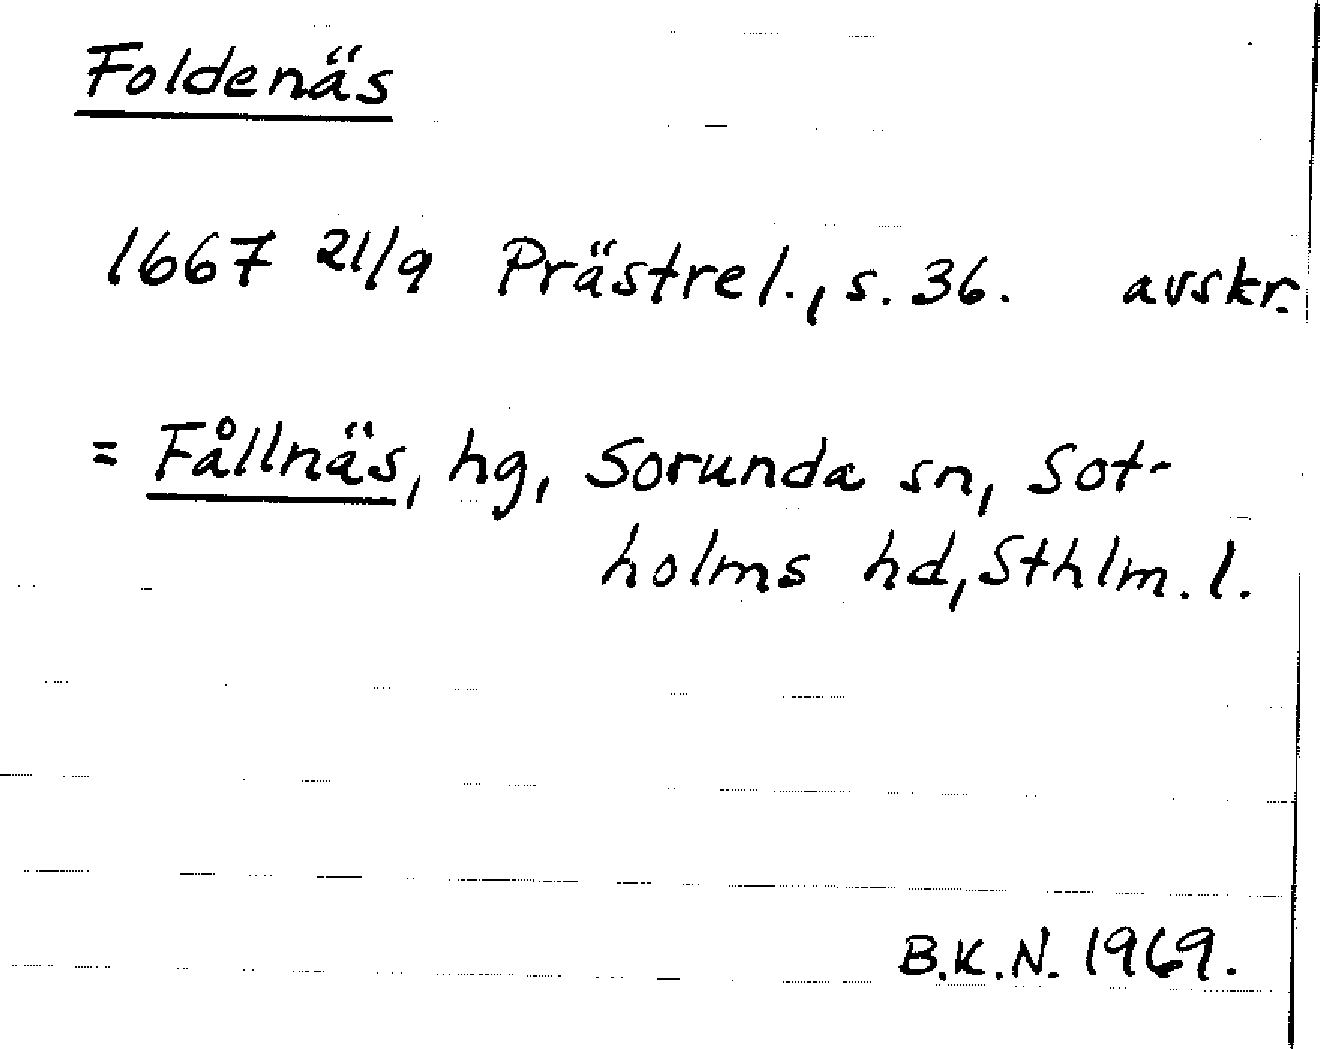 Foldenäs
1667 21/9 Prästrel., s. 36. avskr.
= Fållnäs, hg, Sorunda sn, Sot-
holms hd, Sthlm. l.
B.K.N. 1969.